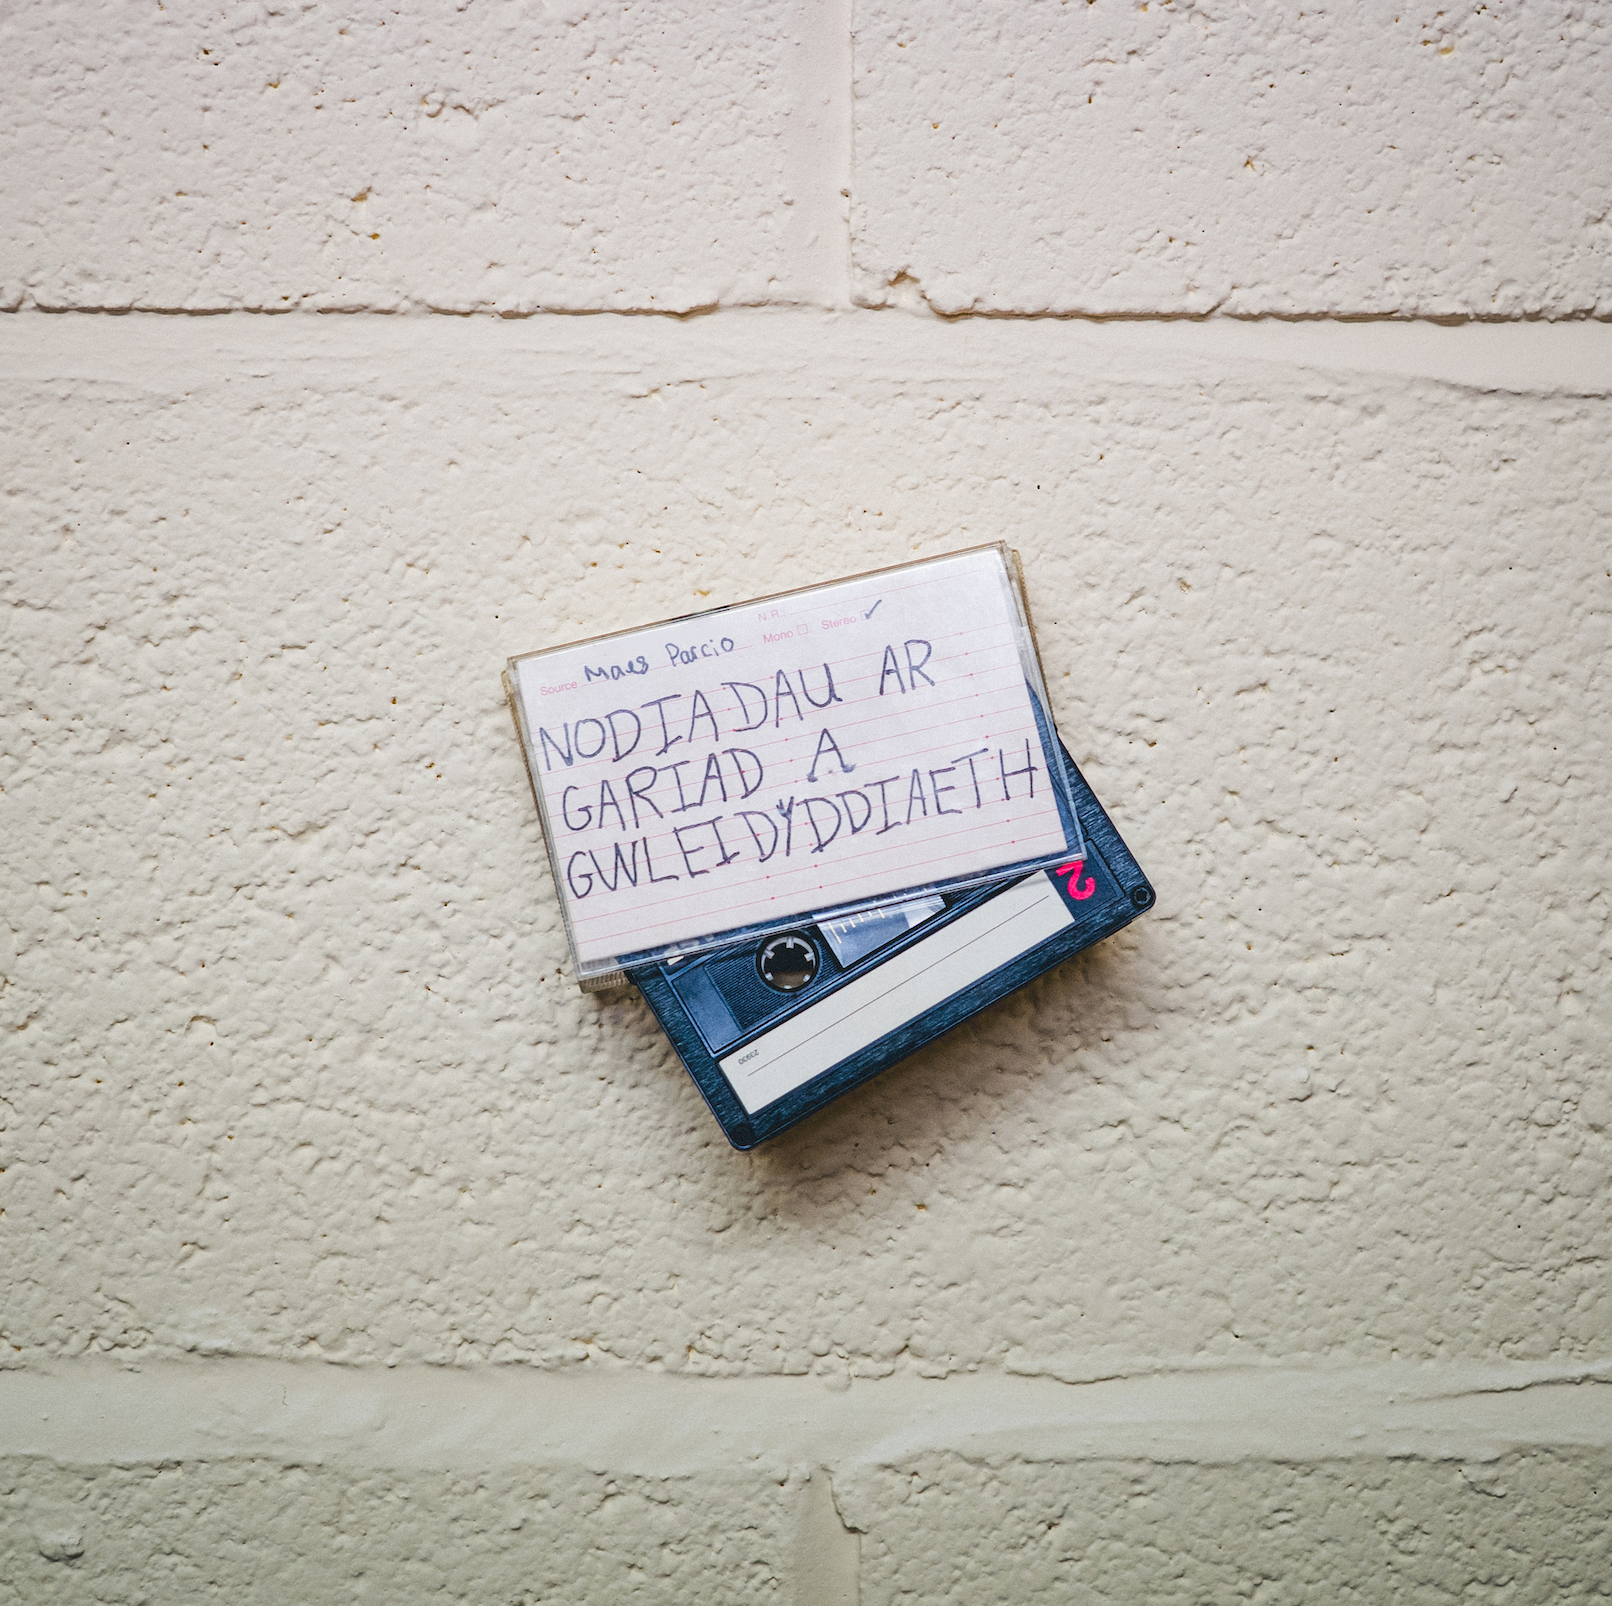 N.R.:
Mono Stereo ✓
Source Maes Parcio
NODIADAU AR
GARIAD A
GWLEIDYDDIAETH
2